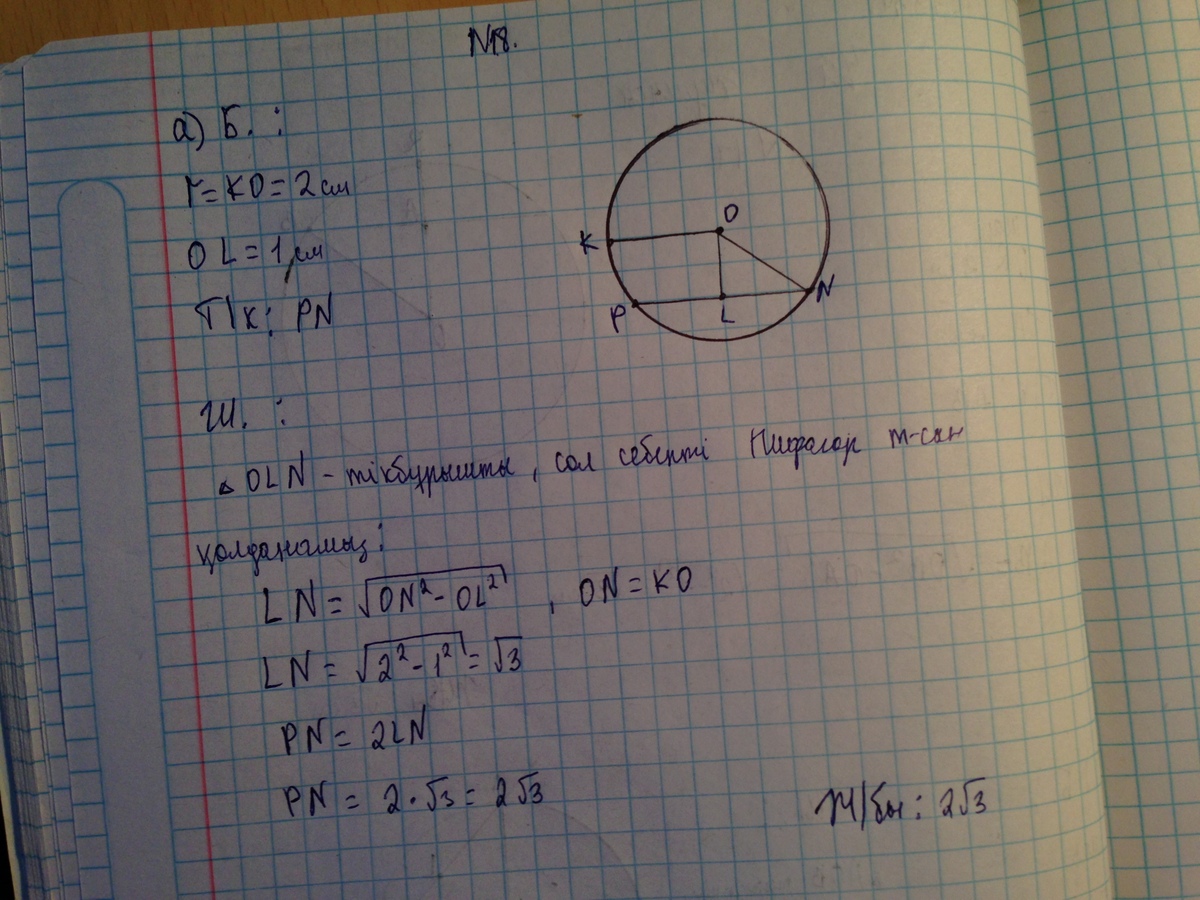 N18.
а) Б. :
r=KO=2см
OL=1см
Т/к: PN
O
K
P
L
N
Ш. :
△OLN - тікбұрышты, сол себепті Пифагор т-сын
қолданамыз:
LN = √(ON² - OL²) , ON = KO
LN = √(2² - 1²) = √3
PN = 2LN
PN = 2·√3 = 2√3
Ж/бы: 2√3